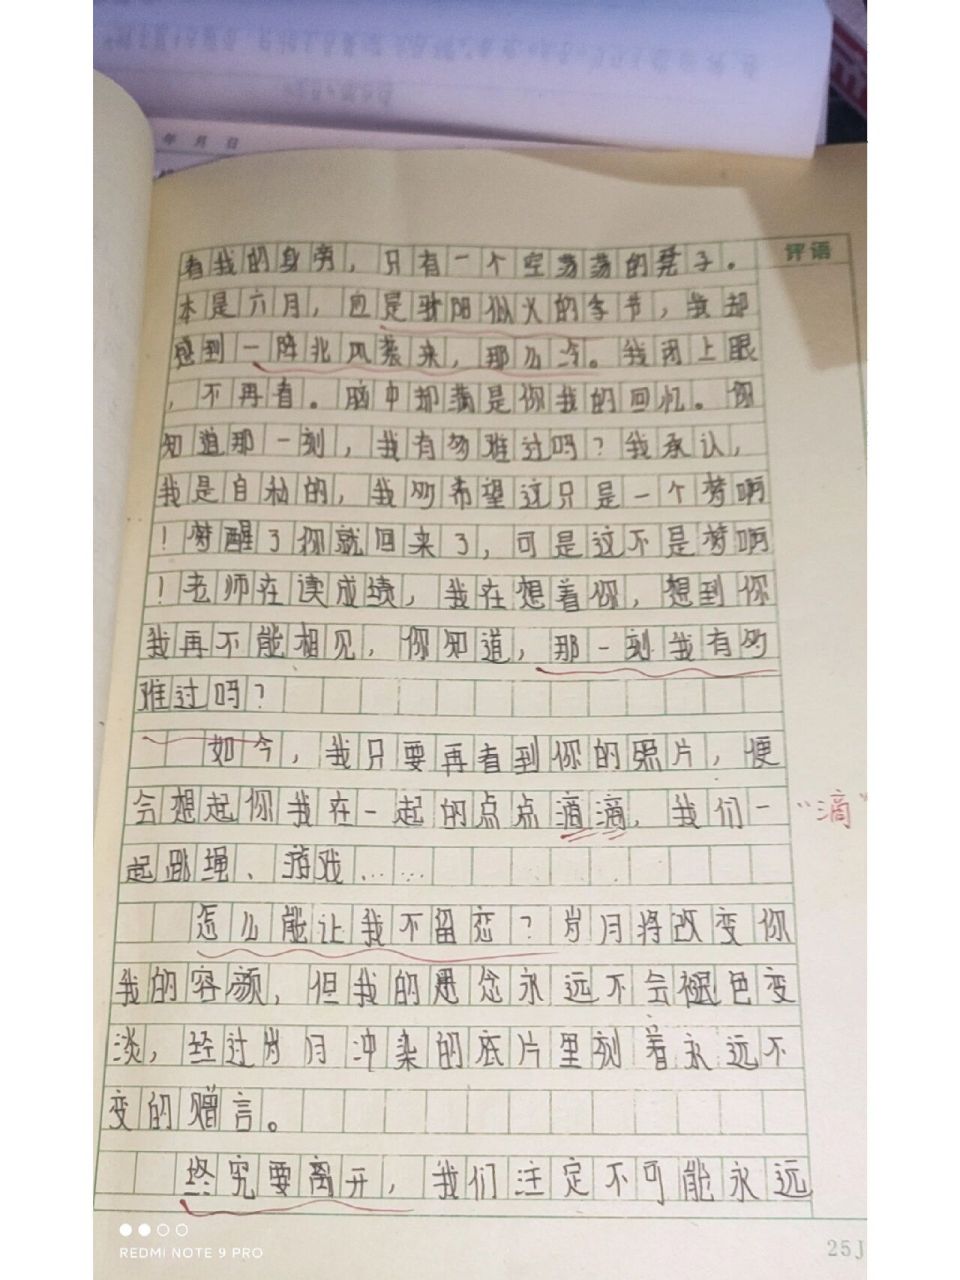 年 月 日
评语
看我的身旁，只有一个空荡荡的凳子。
本是六月，应是骄阳似火的季节，我却
感到一阵北风袭来，那么冷。我闭上眼
，不再看。脑中却满是你我的回忆。你
知道那一刻，我有多难过吗？我承认，
我是自私的，我多希望这只是一个梦啊
！梦醒了你就回来了，可是这不是梦啊
！老师在读成绩，我在想着你，想到你
我再不能相见，你知道，那一刻我有多
难过吗？
如今，我只要再看到你的照片，便
会想起你我在一起的点点滴滴，我们一
"滴"
起跳绳、游戏……
怎么能让我不留恋？岁月将改变你
我的容颜，但我的思念永远不会褪色变
淡，经过岁月冲染的底片里刻着永远不
变的赠言。
终究要离开，我们注定不可能永远
REDMI NOTE 9 PRO
25J